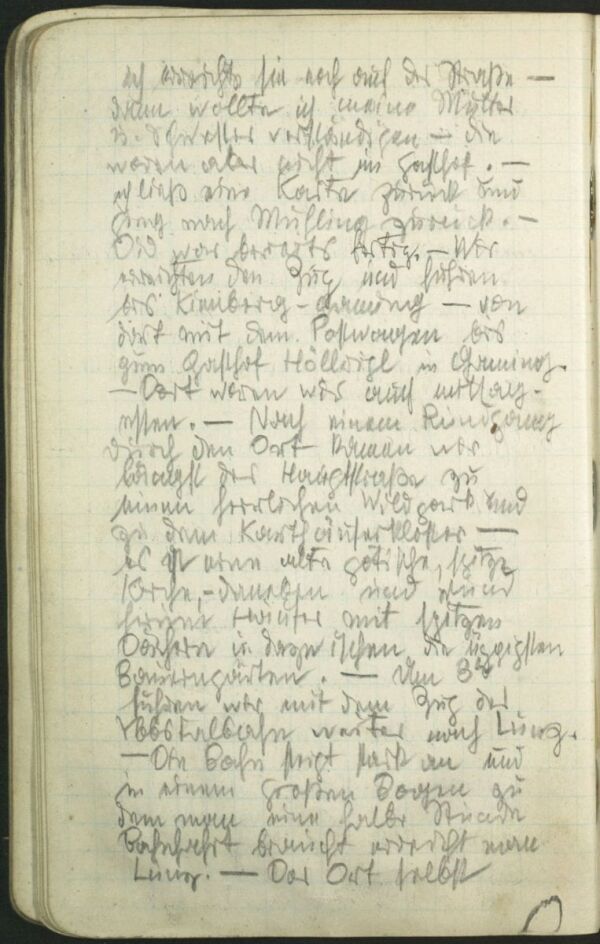 ich erreichte sie noch auf der Straße —
dann wollte ich meine Mutter
u. Schwester verständigen — die
waren aber nicht im Gasthof. —
ich ließ eine Karte zurück und
ging nach Mühling zurück. —
war bereits fertig. — Wir
erreichten den Zug und fuhren
bis Kienberg-Gaming — von
dort mit dem Postwagen bis
zum Gasthof Höllriegl in Gaming.
— Dort waren wir auch mittag-
essen. — Nach einem Rundgang
durch den Ort kamen wir
längst der Hauptstraße zu
einen herrlichen Wildpark und
zu dem Karthäuserkloster —
es ist eine alte gotische, spitze
Kirche, – daneben und
Häuser mit spitzen
Dächern u dazwischen die üppigsten
Bauerngärten. — Um 3
fuhren wir mit dem Zug der
Ybbstalbahn weiter nach Lunz.
— Die Bahn steigt stark an und
in einem großen Bogen zu
dem man eine halbe Stunde
Bahnfahrt braucht erreicht man
Lunz. — Der Ort selbst